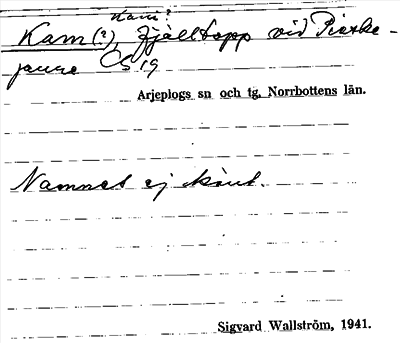 Kani?
Kam (?), Fjälltopp vid Pieske-
jaure CS 19
Arjeplogs sn och tg, Norrbottens län.
Namnet ej känt.
Sigvard Wallström, 1941.